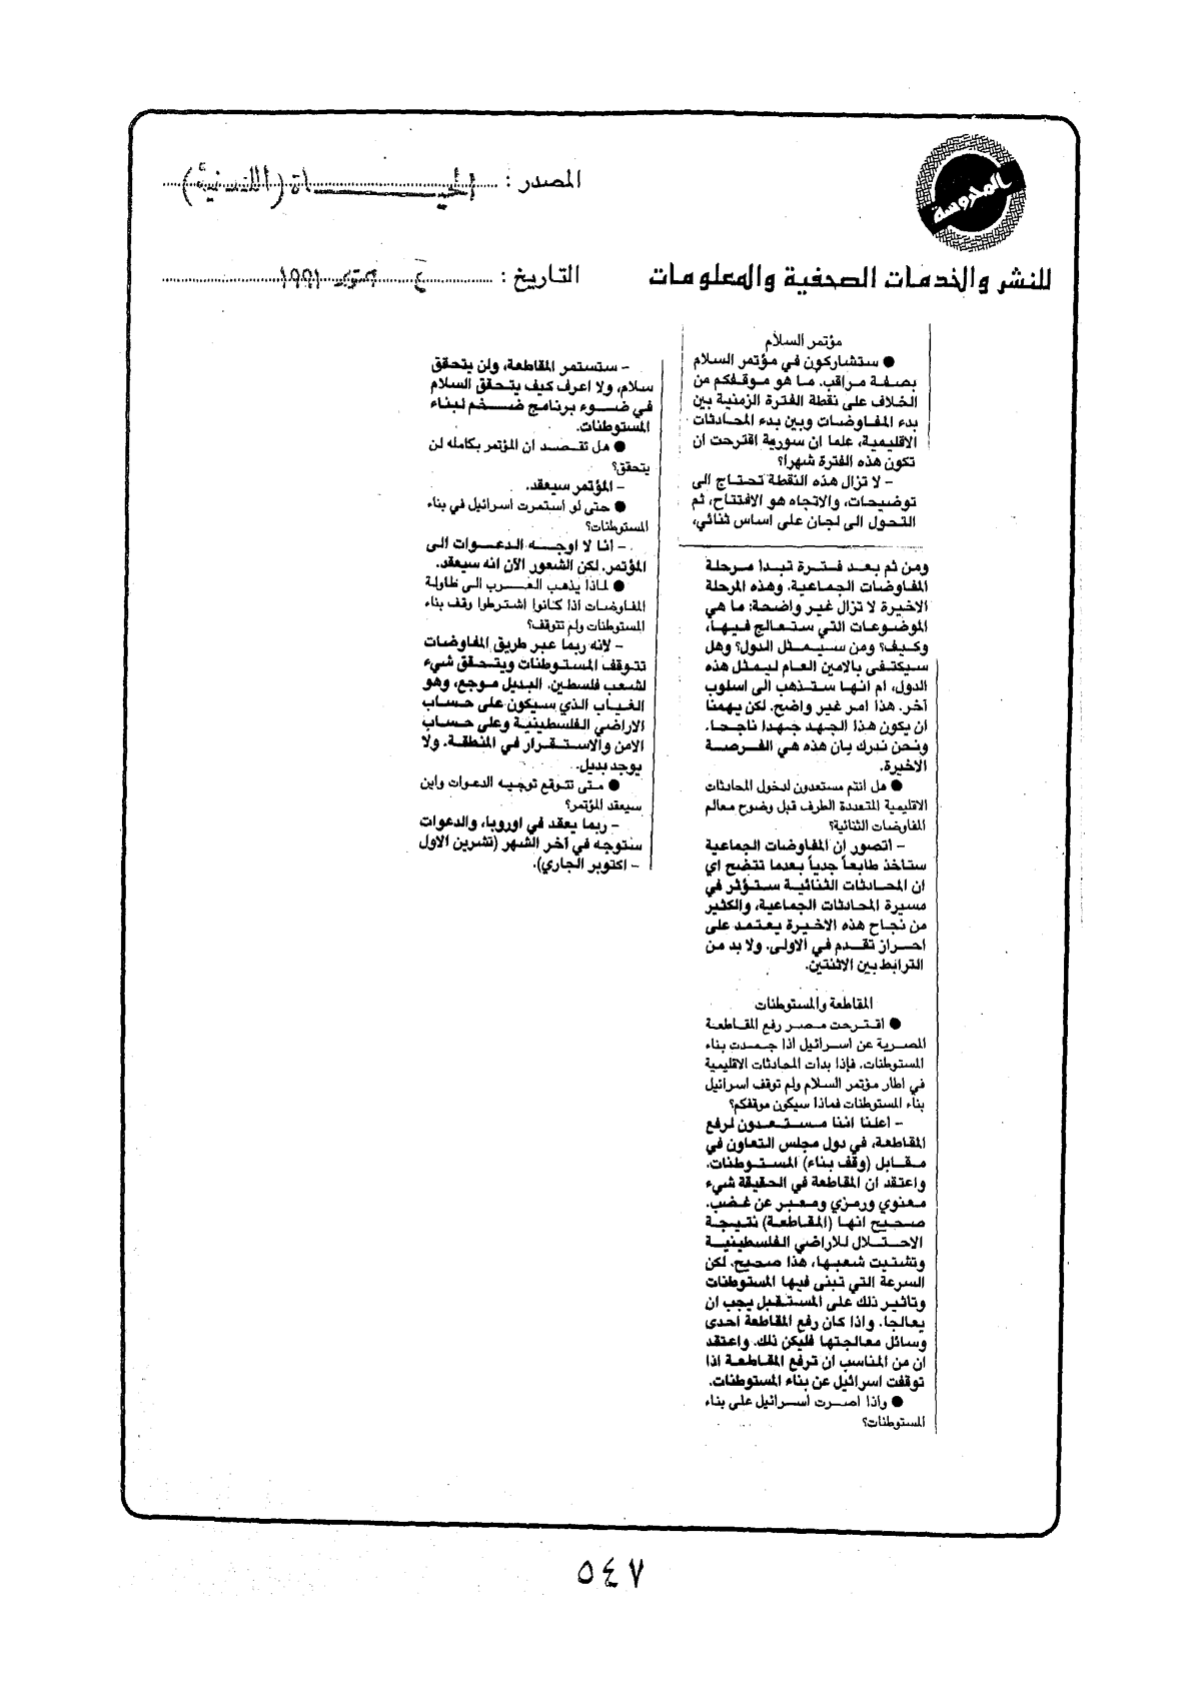 المحروسة
المصدر : الحيـــــاة (اللندنية)
للنشر والخدمات الصحفية والمعلومات
التاريخ : ٤ أكتوبر ١٩٩١
مؤتمر السلام
● ستشاركون في مؤتمر السلام
بصفة مراقب. ما هو موقفكم من
الخلاف على نقطة الفترة الزمنية بين
بدء المفاوضات وبين بدء المحادثات
الاقليمية، علما ان سورية اقترحت ان
تكون هذه الفترة شهرا؟
- لا تزال هذه النقطة تحتاج الى
توضيحات، والاتجاه هو الافتتاح، ثم
التحول الى لجان على اساس ثنائي،
ومن ثم بعد فترة تبدا مرحلة
المفاوضات الجماعية. وهذه المرحلة
الاخيرة لا تزال غير واضحة: ما هي
الموضوعات التي ستعالج فيها،
وكيف؟ ومن سيمثل الدول؟ وهل
سيكتفى بالامين العام ليمثل هذه
الدول، ام انها ستذهب الى اسلوب
آخر. هذا امر غير واضح. لكن يهمنا
ان يكون هذا الجهد جهدا ناجحا.
ونحن ندرك بان هذه هي الفرصة
الاخيرة.
● هل انتم مستعدون لدخول المحادثات
الاقليمية المتعددة الطرف قبل وضوح معالم
المفاوضات الثنائية؟
- اتصور ان المفاوضات الجماعية
ستاخذ طابعاً جدياً بعدما تتضح اي
ان المحادثات الثنائية ستؤثر في
مسيرة المحادثات الجماعية، والكثير
من نجاح هذه الاخيرة يعتمد على
احراز تقدم في الاولى. ولا بد من
الترابط بين الاثنتين.
المقاطعة والمستوطنات
● اقترحت مصر رفع المقاطعة
المصرية عن اسرائيل اذا جمدت بناء
المستوطنات. فإذا بدات المحادثات الاقليمية
في اطار مؤتمر السلام ولم توقف اسرائيل
بناء المستوطنات فماذا سيكون موقفكم؟
- اعلنا اننا مستعدون لرفع
المقاطعة، في دول مجلس التعاون في
مقابل (وقف بناء) المستوطنات.
واعتقد ان المقاطعة في الحقيقة شيء
معنوي ورمزي ومعبر عن غضب.
صحيح انها (المقاطعة) نتيجة
الاحتلال للاراضي الفلسطينية
وتشتيت شعبها، هذا صحيح. لكن
السرعة التي تبنى فيها المستوطنات
وتاثير ذلك على المستقبل يجب ان
يعالجا. واذا كان رفع المقاطعة احدى
وسائل معالجتها فليكن ذلك. واعتقد
ان من المناسب ان ترفع المقاطعة اذا
توقفت اسرائيل عن بناء المستوطنات.
● واذا اصرت اسرائيل على بناء
المستوطنات؟
- ستستمر المقاطعة، ولن يتحقق
سلام، ولا اعرف كيف يتحقق السلام
في ضوء برنامج ضخم لبناء
المستوطنات.
● هل تقصد ان المؤتمر بكامله لن
يتحقق؟
- المؤتمر سيعقد.
● حتى لو استمرت اسرائيل في بناء
المستوطنات؟
- انا لا اوجه الدعوات الى
المؤتمر. لكن الشعور الآن انه سيعقد.
● لماذا يذهب العرب الى طاولة
المفاوضات اذا كانوا اشترطوا وقف بناء
المستوطنات ولم تتوقف؟
- لانه ربما عبر طريق المفاوضات
تتوقف المستوطنات ويتحقق شيء
لشعب فلسطين. البديل موجع، وهو
الغياب الذي سيكون على حساب
الاراضي الفلسطينية وعلى حساب
الامن والاستقرار في المنطقة. ولا
يوجد بديل.
● متى تتوقع توجيه الدعوات واين
سيعقد المؤتمر؟
- ربما يعقد في اوروبا، والدعوات
ستوجه في آخر الشهر (تشرين الاول
- اكتوبر الجاري).
٥٤٧